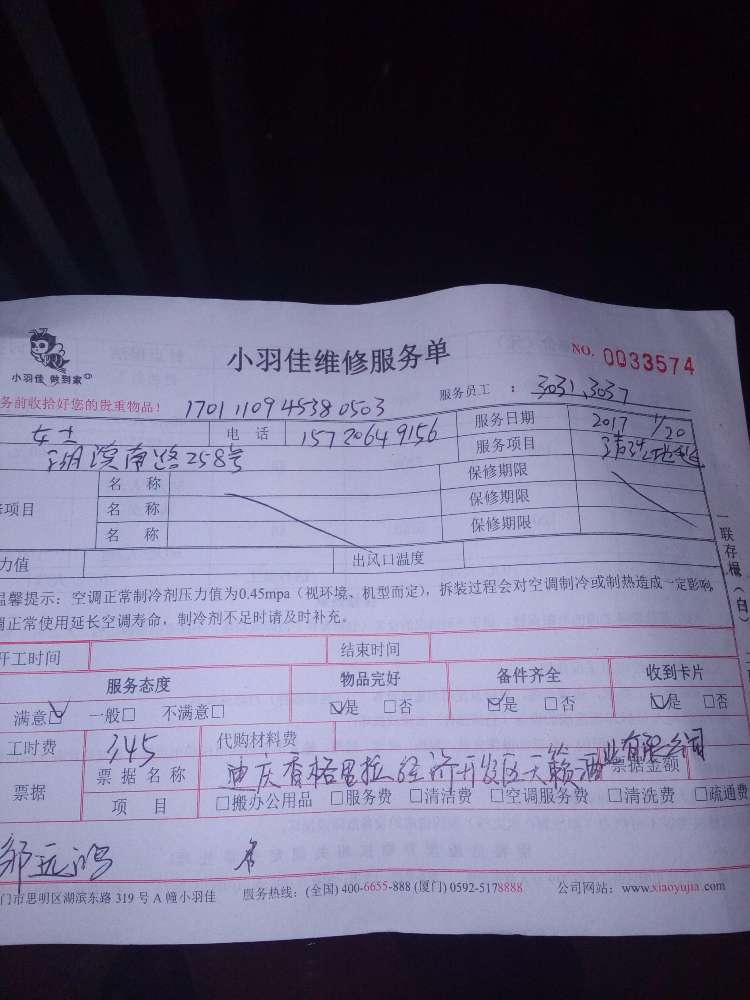 小羽佳维修服务单
NO. 0033574
小羽佳 做到家
务前收拾好您的贵重物品！ 1701110945380503 服务员工 ： 3031、3037
女士 电 话 15720649156 服务日期 2017 1/20
湖滨南路258号 服务项目 清洗地毯
名 称 保修期限
项目 名 称 保修期限
名 称 保修期限
力值 出风口温度
温馨提示：空调正常制冷剂压力值为0.45mpa（视环境、机型而定），拆装过程会对空调制冷或制热造成一定影响，
正常使用延长空调寿命，制冷剂不足时请及时补充。
开工时间 结束时间
服务态度 物品完好 备件齐全 收到卡片
满意☑ 一般□ 不满意□ ☑是 □否 ☑是 □否 ☑是 □否
工时费 345 代购材料费
票据 票据名称 迪庆香格里拉经济开发区天籁酒业有限公司 票据金额
项 目 □搬办公用品 □服务费 □清洁费 □空调服务费 □清洗费 □疏通费
邹
门市思明区湖滨东路 319 号 A 幢小羽佳 服务热线：(全国) 400-6655-888 (厦门) 0592-5178888 公司网站：www.xiaoyujia.com
一联存根（白）